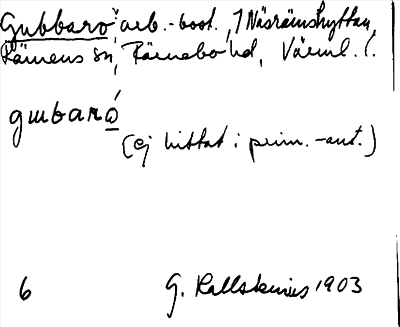 Gubbaro arb.-bost., 7 Näsrämshyttan,
Rämens sn, Färnebo hd, Värml. l.
gubaró
(ej hittat i prim.-ant.)
6 G. Kallstenius 1903